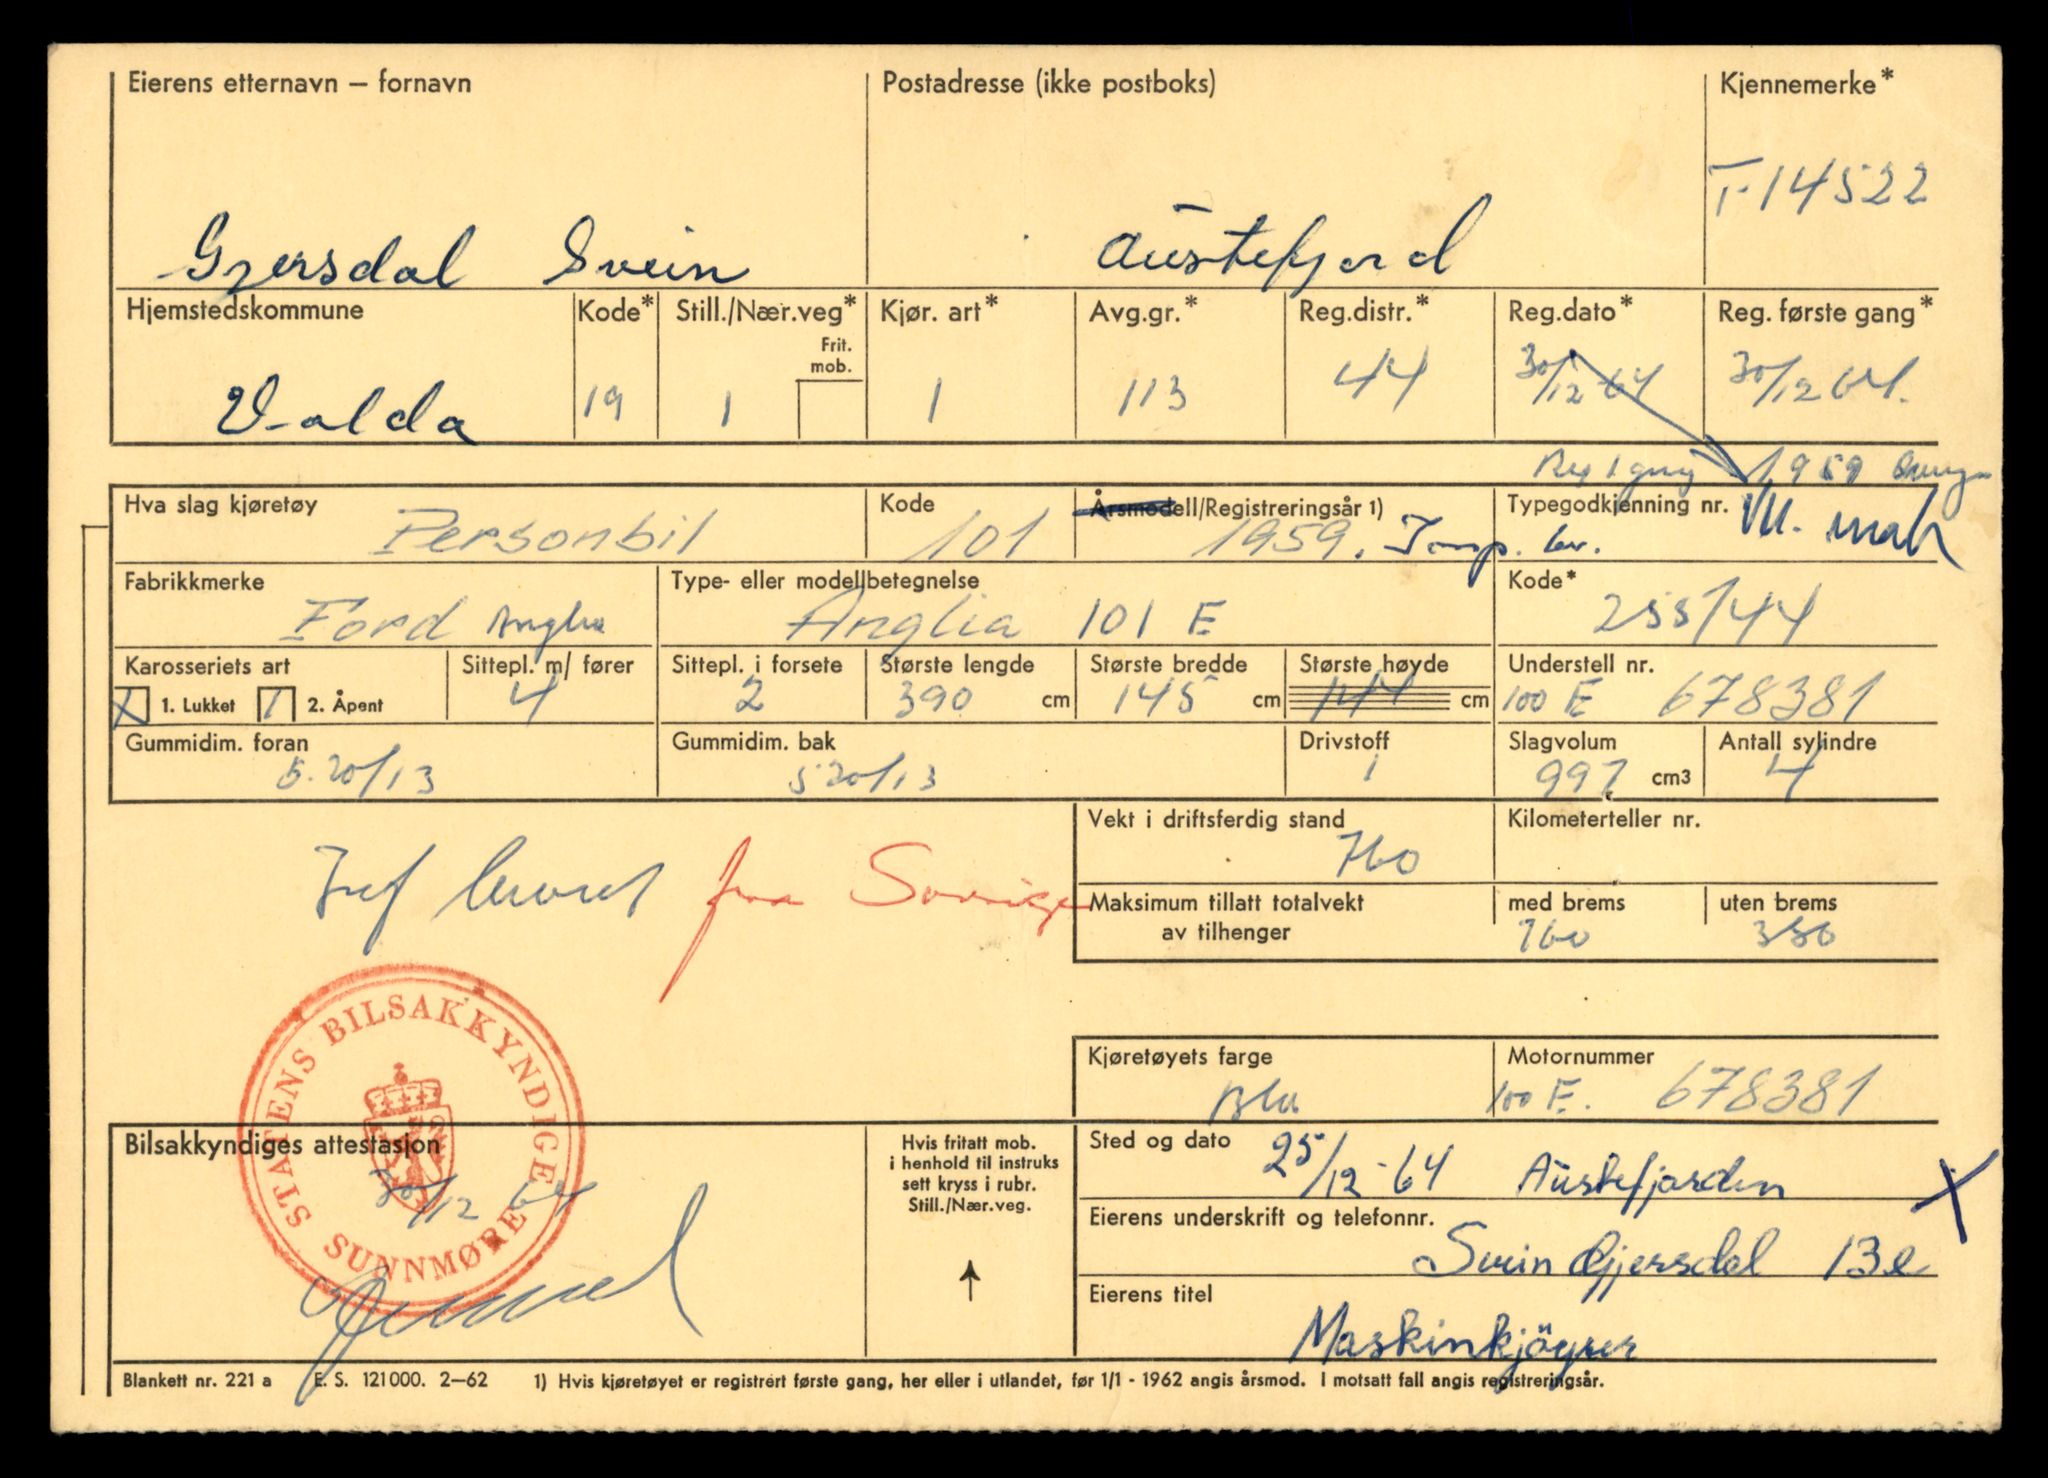 Eierens etternavn – fornavn Postadresse (ikke postboks) Kjennemerke*
T-14522
Gjersdal Svein Austefjord
Hjemstedskommune Kode* Still./Nær.veg* Kjør. art* Avg.gr.* Reg.distr.* Reg.dato* Reg. første gang*
Frit. mob.
Volda 19 1 1 113 44 30/12 64 30/12 64.
Reg 1 gang 1959
Hva slag kjøretøy Kode Årsmodell/Registreringsår 1) Typegodkjenning nr.
Personbil 101 1959. Imp. br.
Fabrikkmerke Type- eller modellbetegnelse Kode*
Ford Anglia Anglia 101 E 255/44
Karosseriets art Sittepl. m/ fører Sittepl. i forsete Største lengde Største bredde Største høyde Understell nr.
X 1. Lukket 2. Åpent 4 2 390 cm 145 cm 144 cm 100 E 678381
Gummidim. foran Gummidim. bak Drivstoff Slagvolum Antall sylindre
5.20/13 5 20/13 1 997 cm3 4
Vekt i driftsferdig stand Kilometerteller nr.
760
fra Sverige
Maksimum tillatt totalvekt med brems uten brems
av tilhenger 760 380
STATENS BILSAKKYNDIGE
SUNNMØRE
Kjøretøyets farge Motornummer
Blå 100 E. 678381
Bilsakkyndiges attestasjon
30/12 64
Hvis fritatt mob.
i henhold til instruks
sett kryss i rubr.
Still./Nær.veg.
Sted og dato
25/12-64 Austefjorden X
Eierens underskrift og telefonnr.
Svein Gjersdal 13e
Eierens titel
Maskinkjöyrer
Blankett nr. 221 a E. S. 121000. 2–62 1) Hvis kjøretøyet er registrert første gang, her eller i utlandet, før 1/1 - 1962 angis årsmod. I motsatt fall angis registreringsår.